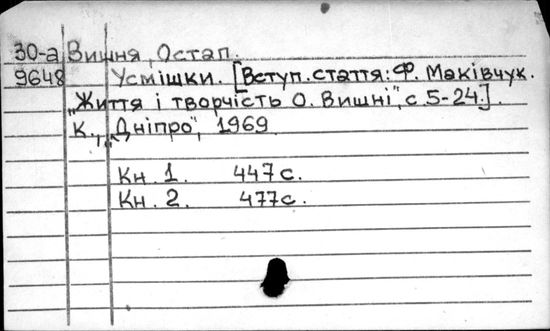 30-а Вишня, Остап.
9648 Усмішки. [Вступ. стаття: Ф. Маківчук.
„Життя і творчість О. Вишні", с. 5-24.]
К., „Дніпро", 1969
Кн. 1. 447 с.
Кн. 2. 477 с.